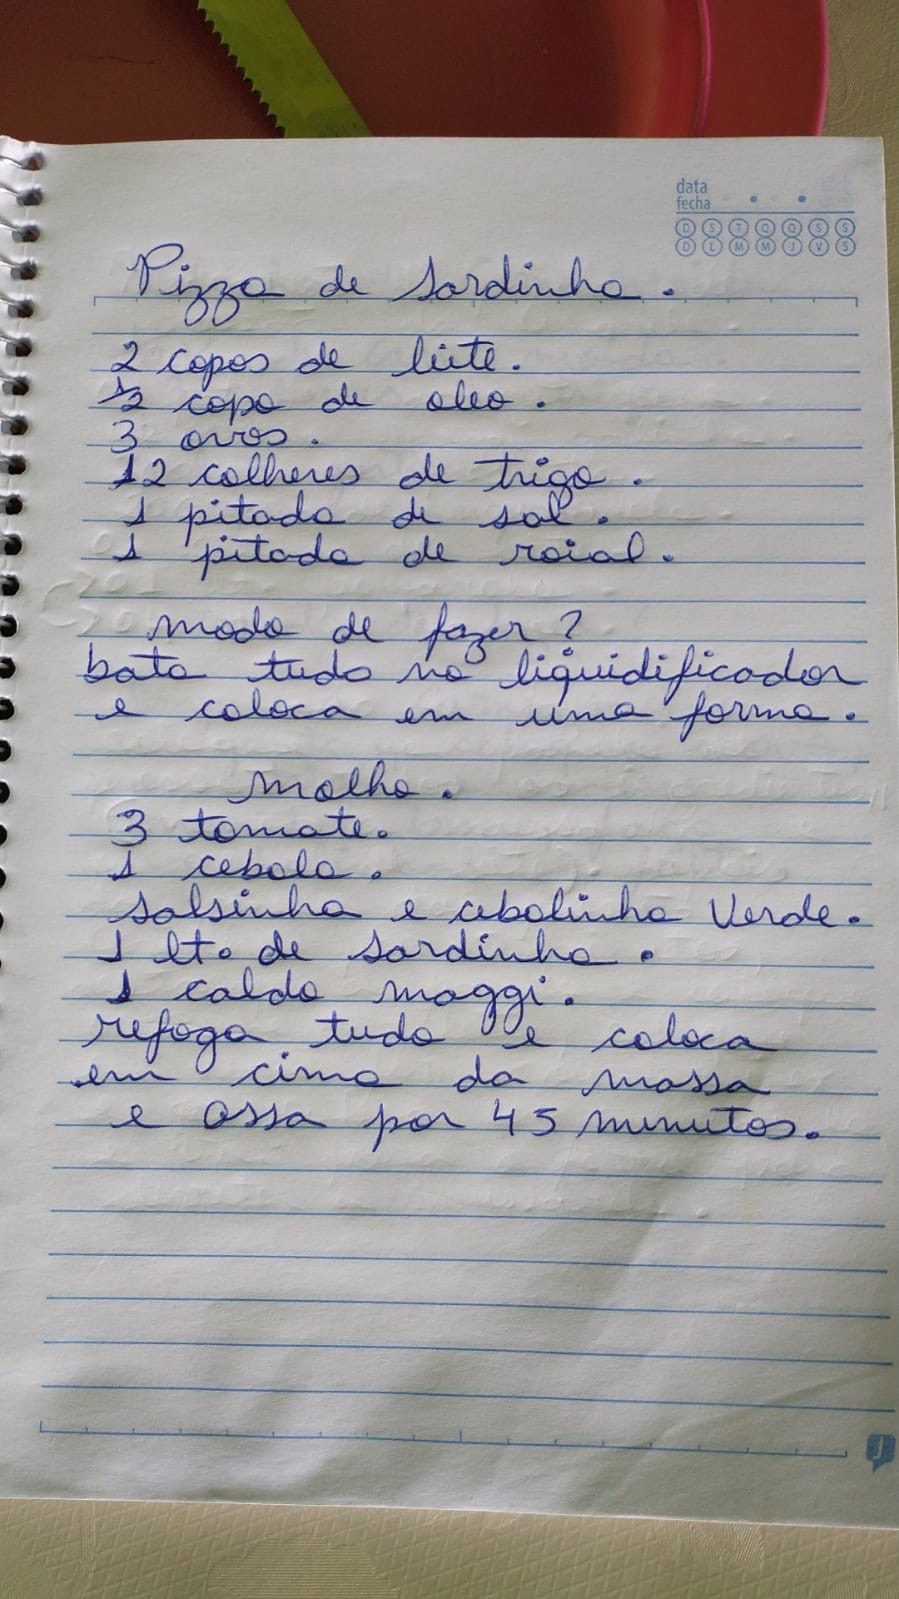 data
fecha
D S T Q Q S S
D L M M J V S
Pizza de sardinha.
2 copos de leite.
1/2 copo de oleo.
3 ovos.
12 colheres de trigo.
1 pitada de sal.
1 pitada de roial.
modo de fazer?
bata tudo no liquidificador
e coloca em uma forma.
molho.
3 tomate.
1 cebola.
salsinha e cebolinha Verde.
1 lta de sardinha.
1 caldo maggi.
refoga tudo e coloca
em cima da massa
e assa por 45 minutos.
J